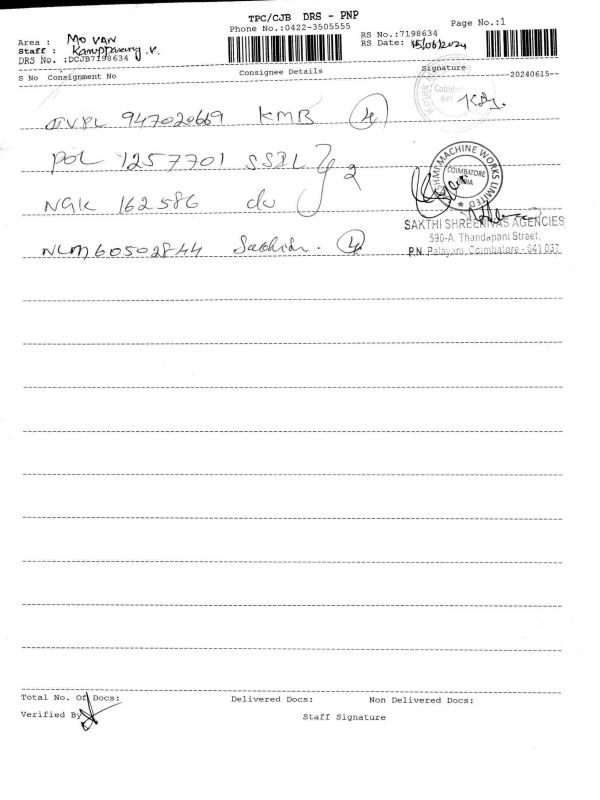 TPC/CJB DRS - PNP
Phone No.:0422-3505555
Page No.:1
Area : MO VAN
Staff : V.
DRS No. :DCJB7198634
RS No.:7198634
RS Date: 15/06/2024
S No Consignment No
Consignee Details
Signature
--20240615--
947020669 KMB 4
POL 1257701 SSIL 2
NGK 162586 do
NLM60502844 4
MACHINE WORKS LIMITED
COIMBATORE
SAKTHI SHREENIVAS AGENCIES
590-A, Thandapani Street,
P.N. Palayam, Coimbatore - 641 037
Total No. Of Docs:
Delivered Docs:
Non Delivered Docs:
Verified By
Staff Signature